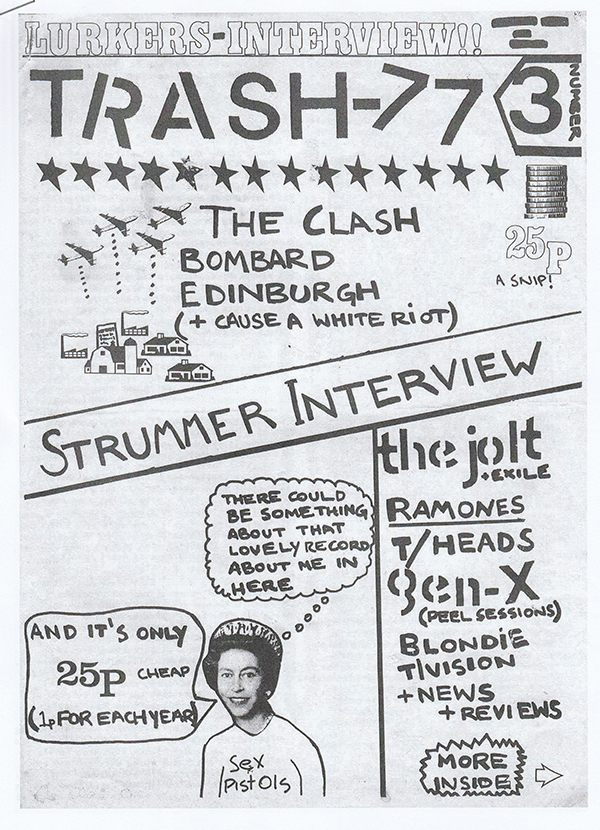 LURKERS-INTERVIEW!!
TRASH-77
3
NUMBER
25p
A SNIP!
THE CLASH
BOMBARD
EDINBURGH
(+ CAUSE A WHITE RIOT)
STRUMMER INTERVIEW
the jolt
+ EXILE
RAMONES
T/HEADS
gen-X
(PEEL SESSIONS)
BLONDIE
T/VISION
+ NEWS
+ REVIEWS
MORE
INSIDE
THERE COULD
BE SOMETHING
ABOUT THAT
LOVELY RECORD
ABOUT ME IN
HERE
AND IT'S ONLY
25p CHEAP
(1p FOR EACH YEAR)
Sex
PistOls